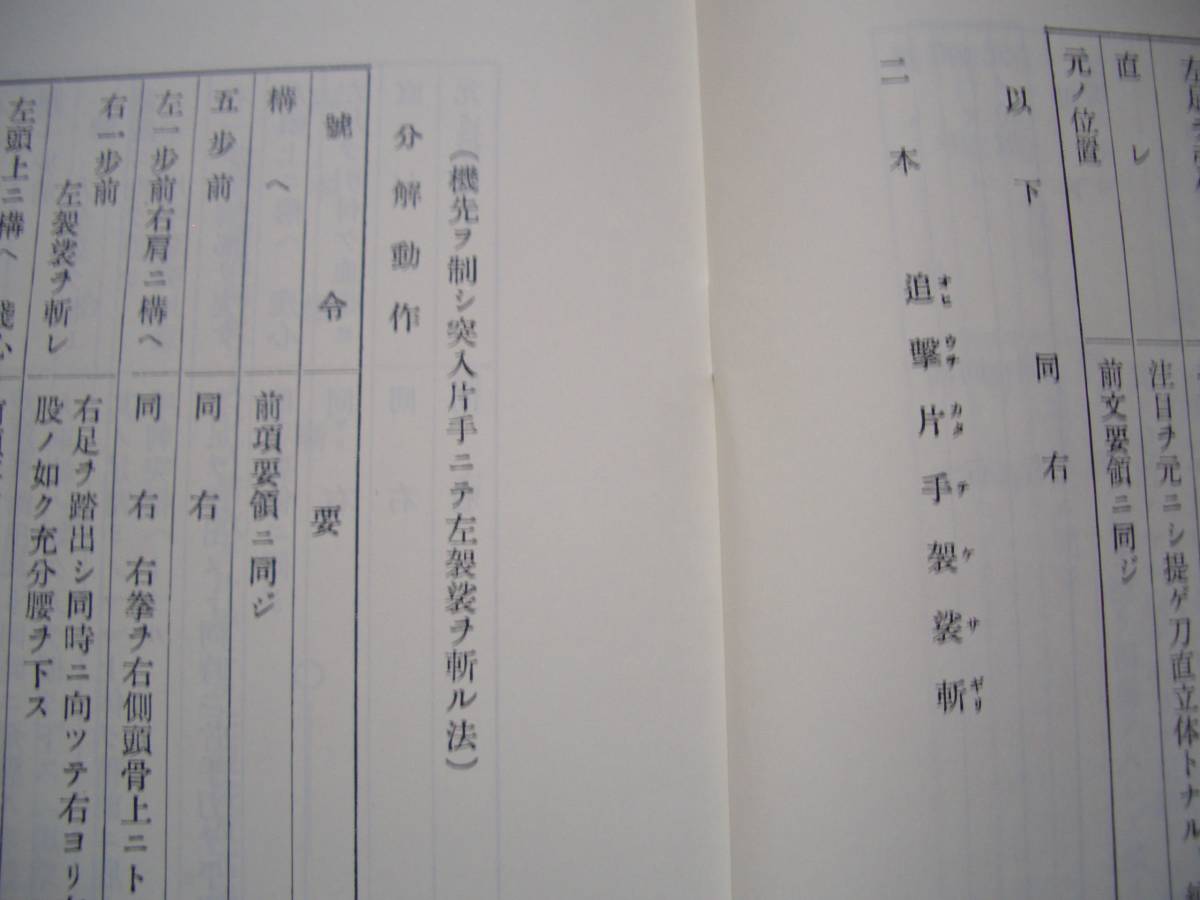 直レ
注目ヲ元ニシ提ゲ刀直立体トナル
元ノ位置
前文要領ニ同ジ
以下同右
二本 追擊片手袈裟斬
オヒ ウチ カタ テ ケ サ ギリ
(機先ヲ制シ突入片手ニテ左袈裟ヲ斬ル法)
分解動作
號令
要
構ヘ
前項要領ニ同ジ
五步前
同右
左一步前右肩ニ構ヘ
同右 右拳ヲ右側頭骨上ニト
右一步前
左袈裟ヲ斬レ
右足ヲ踏出シ同時ニ向ツテ右ヨリ
股ノ如ク充分腰ヲ下ス
左頭上ニ構ヘ殘心